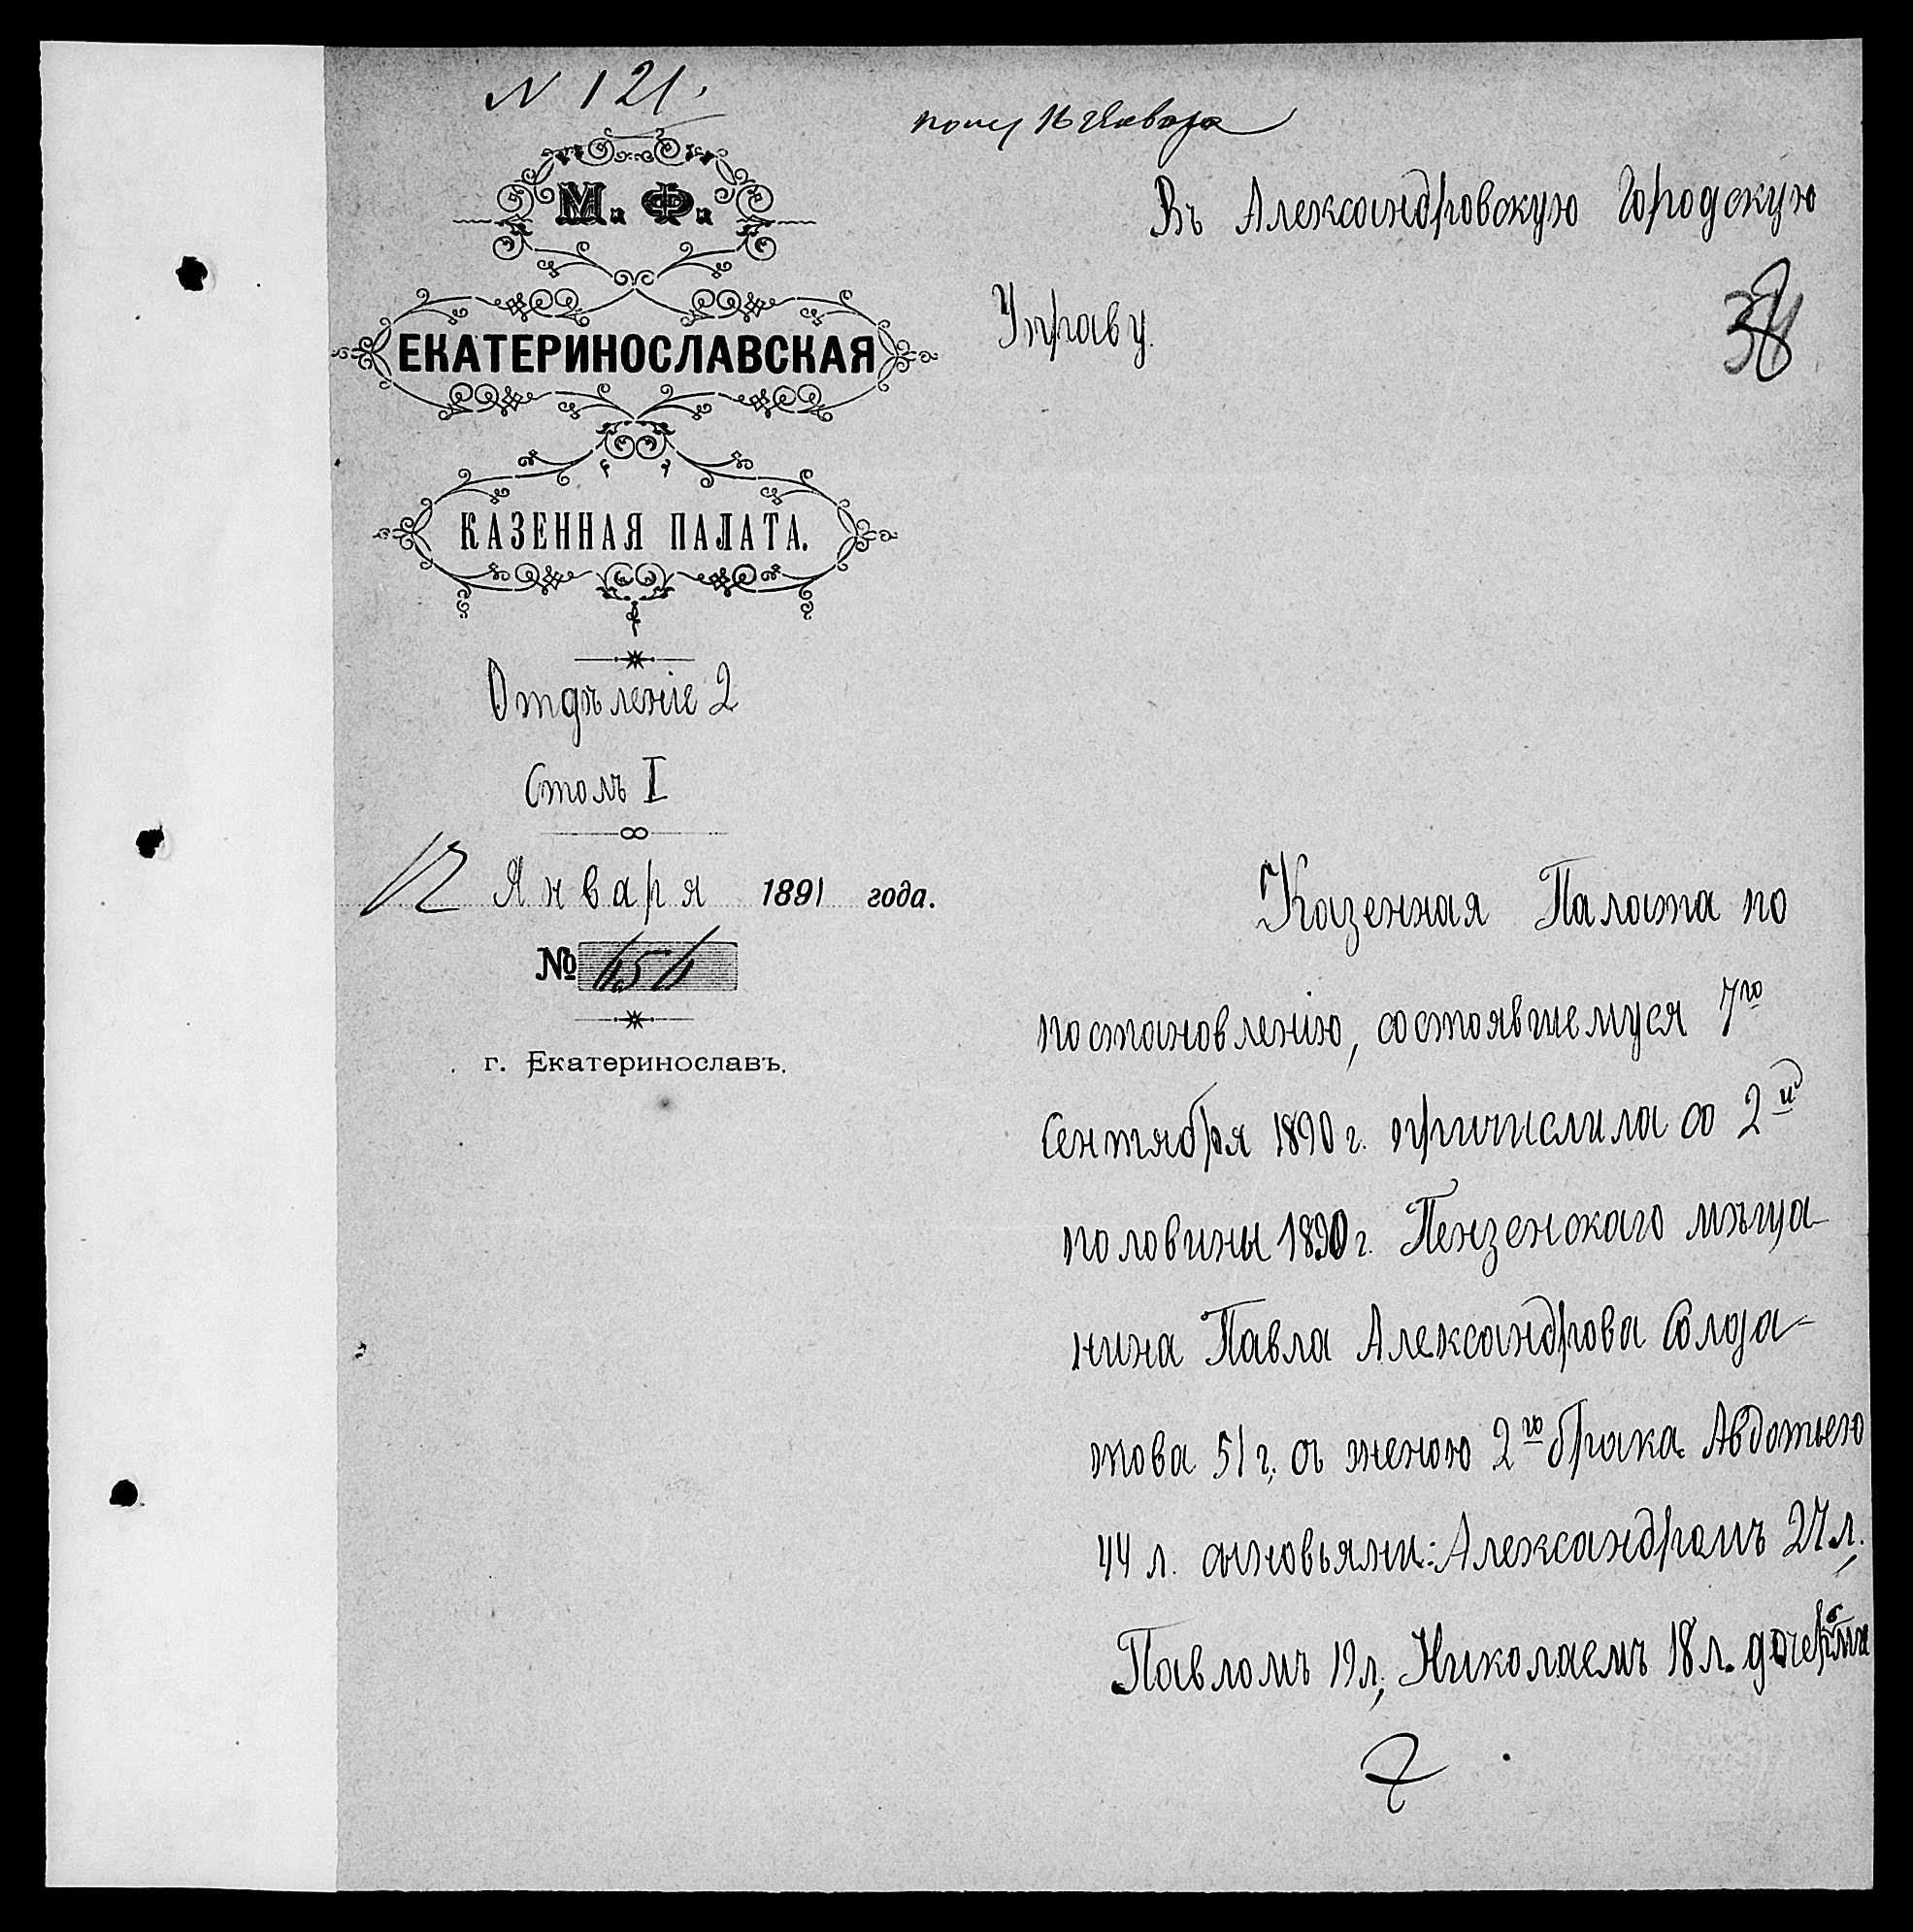 N 121.
16 Января
М. Ф.
ЕКАТЕРИНОСЛАВСКАЯ
КАЗЕННАЯ ПАЛАТА.
Отдѣленіе 2
Столъ I
12 Января 1891 года.
№
г. Екатеринославъ.
Въ Александровскую Городскую
Управу.
Казенная Палата по
постановленію, состоявшемуся 7го
Сентября 1890 г. причислила со 2й
половины 1890 г. Пензенскаго мѣща-
нина Павла Александрова Солда-
това 51 г., съ женою 2го брака Авдотьею
44 л. сыновьями: Александромъ 27 л.,
Павломъ 19 л., Николаемъ 18 л. дочерьми